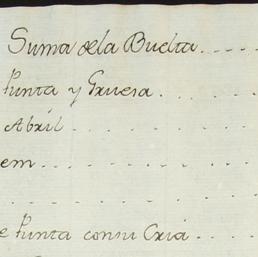 Suma de la Buelta
Punta y Gruesa
Abril
em
e Punta con su Cria